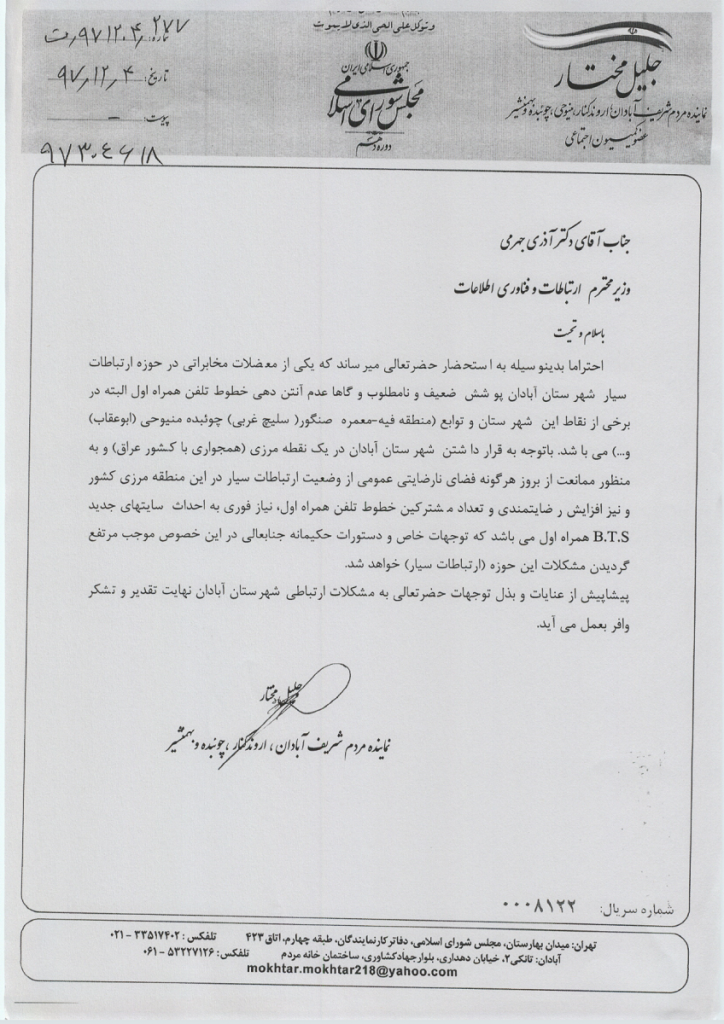 وتوکل علی الحی الذی لا یموت
جمهوری اسلامی ایران
مجلس شورای اسلامی
دوره دهم
جلیل مختار
نماینده مردم شریف آبادان، اروندکنار، منیوحی، چوئبده و بهمنشیر
عضو کمیسیون اجتماعی
شماره: ۹۷۱۲۰۴٫۲۷۷٫ت
تاریخ: ۹۷٫۱۲٫۴
پیوست: -
۹۷۳۰۴۶۱۸
جناب آقای دکتر آذری جهرمی
وزیر محترم ارتباطات و فناوری اطلاعات
باسلام و تحیت
احتراما بدینوسیله به استحضار حضرتعالی میرساند که یکی از معضلات مخابراتی در حوزه ارتباطات
سیار شهرستان آبادان پوشش ضعیف و نامطلوب و گاها عدم آنتن دهی خطوط تلفن همراه اول البته در
برخی از نقاط این شهرستان و توابع (منطقه فیه-معمره صنگور( سلیچ غربی) چوئبده منیوحی (ابوعقاب)
و...) می باشد. باتوجه به قرار داشتن شهرستان آبادان در یک نقطه مرزی (همجواری با کشور عراق) و به
منظور ممانعت از بروز هرگونه فضای نارضایتی عمومی از وضعیت ارتباطات سیار در این منطقه مرزی کشور
و نیز افزایش رضایتمندی و تعداد مشترکین خطوط تلفن همراه اول، نیاز فوری به احداث سایتهای جدید
B.T.S همراه اول می باشد که توجهات خاص و دستورات حکیمانه جنابعالی در این خصوص موجب مرتفع
گردیدن مشکلات این حوزه (ارتباطات سیار) خواهد شد.
پیشاپیش از عنایات و بذل توجهات حضرتعالی به مشکلات ارتباطی شهرستان آبادان نهایت تقدیر و تشکر
وافر بعمل می آید.
جلیل مختار
نماینده مردم شریف آبادان، اروندکنار، چوئبده و بهمنشیر
شماره سریال: ۰۰۰۸۱۲۲
تهران: میدان بهارستان، مجلس شورای اسلامی، دفاتر کار نمایندگان، طبقه چهارم، اتاق ۴۲۳ تلفکس: ۳۳۵۱۷۴۰۲ - ۰۲۱
آبادان: تانکی۲، خیابان دهداری، بلوار جهاد کشاورزی، ساختمان خانه مردم تلفکس: ۵۳۲۲۷۱۲۶ - ۰۶۱
mokhtar.mokhtar218@yahoo.com